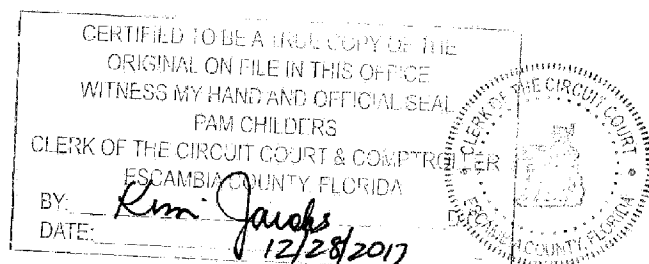 CERTIFIED TO BE A TRUE COPY OF THE
ORIGINAL ON FILE IN THIS OFFICE
WITNESS MY HAND AND OFFICIAL SEAL
PAM CHILDERS
CLERK OF THE CIRCUIT COURT & COMPTROLLER
ESCAMBIA COUNTY, FLORIDA
BY: Kim Jacobs
DATE: 12/28/2017
CLERK OF THE CIRCUIT COURT
ESCAMBIA COUNTY, FLORIDA